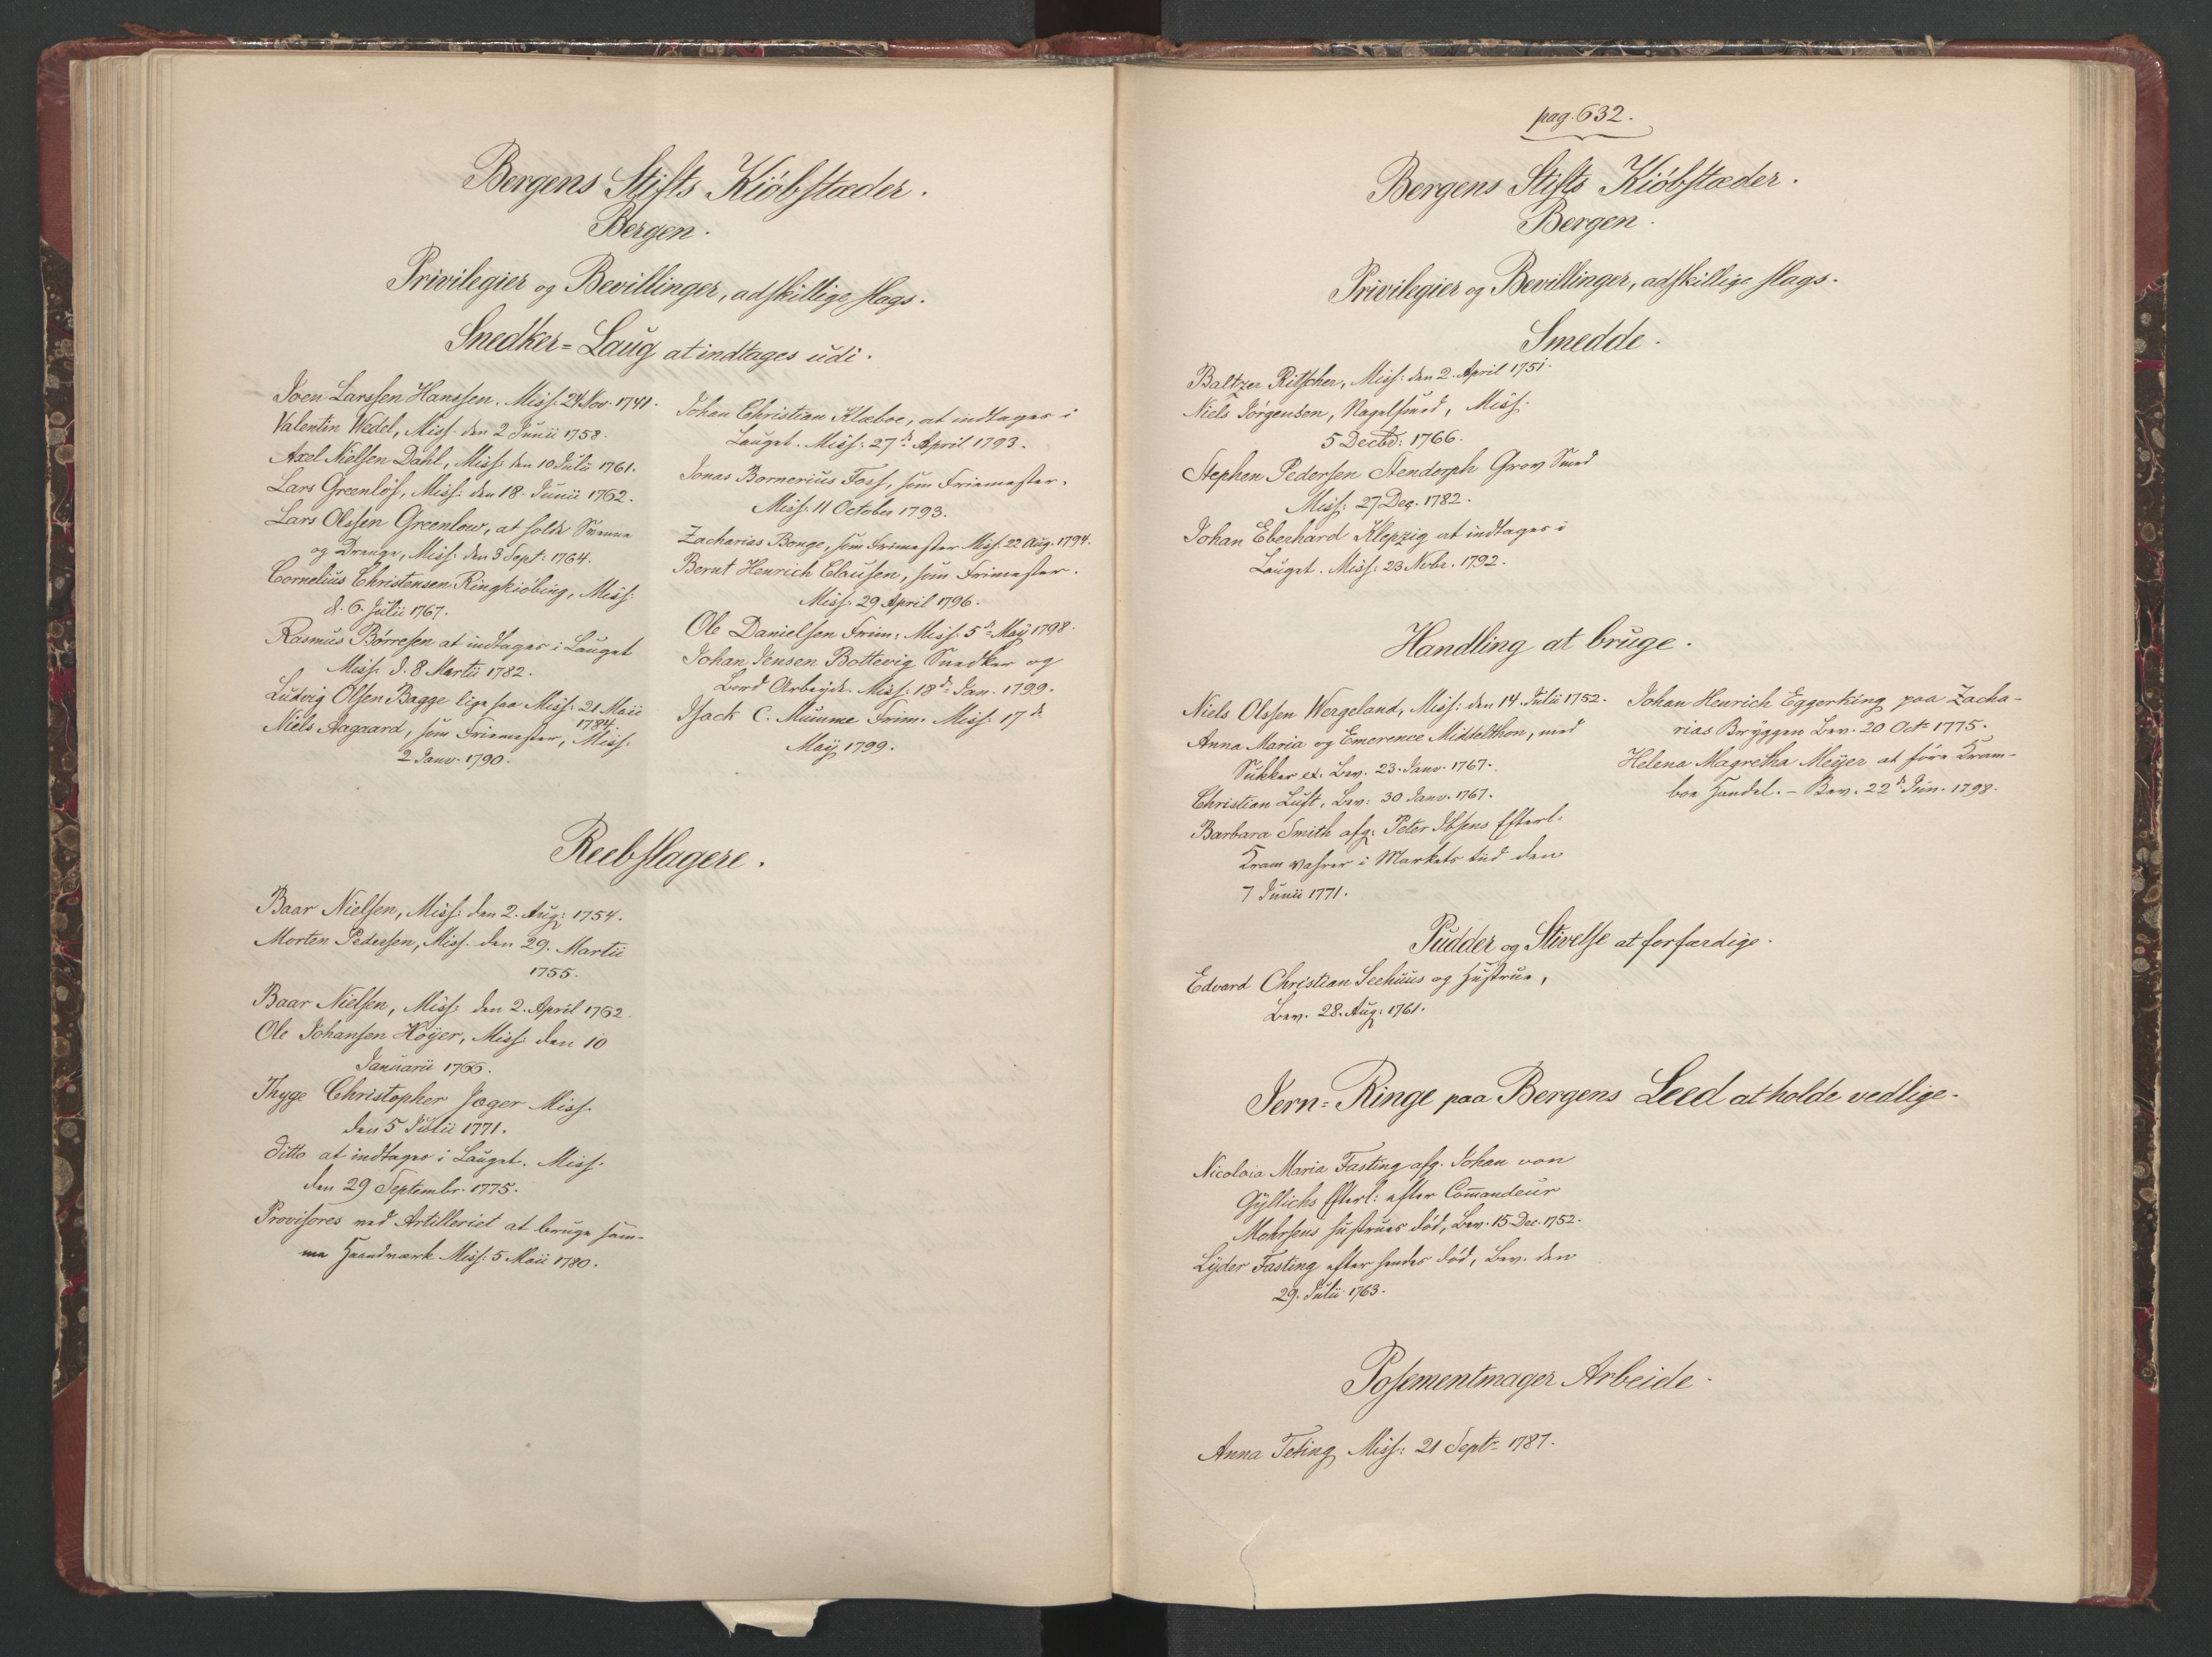 Bergens Stifts Kiöbstæder.
Bergen.
Privilegier og Bevillinger, adskillige slags.
Snedker=Laug at indtages udi.
Joen Larssen Hanssen. Miss. 24 Nov. 1741.
Valentin Wedel, Miss. den 2 Junii 1758.
Axel Nielsen Dahl, Miss: den 10 Julii 1761.
Lars Greenlöf, Miss: den 18. Junii 1762.
Lars Olssen Greenlow, at holde Svenne
og Drenge, Miss: den 3 Sept: 1764.
Cornelius Christensen Ringkiöbing, Miss:
d. 6. Julii 1767.
Rasmus Börresen at indtages i Lauget
Miss. d. 8 Martii 1782.
Ludvig Olsen Bagge lige saa Miss: 21 Maii
1784.
Niels Aagaard, som Friemester, Miss.
2 Janv. 1790.
Johan Christian Klæboe, at indtages i
Lauget. Miss: 27d April 1793.
Jonas Bornerius Foss, som Friemester.
Miss. 11 October 1793.
Zacharias Bonge, som Frimester Miss. 22 Aug. 1794.
Bernt Henrich Clausen, som Frimester.
Miss: 29 April 1796.
Ole Danielsen Frim: Miss. 5d May 1798.
Johan Jensen Bottevig Snedker og
Bord Arbeyde. Miss: 18d Jan. 1799.
Isack C. Mumme Frim. Miss. 17d
May 1799.
Reebslagere.
Baar Nielsen, Miss: den 2. Aug: 1754.
Morten Pedersen, Miss. den 29. Martii
1755.
Baar Nielsen, Miss: den 2. April 1762.
Ole Johansen Höyer, Miss: den 10
Januarii 1766.
Thyge Christopher Jæger Miss.
den 5 Julii 1771.
ditto at indtages i Lauget. Miss.
den 29 Septembr. 1775.
Provisores ved Artilleriet at bruge sam-
me Haandværk Miss: 5 Maii 1780.
pag. 632.
Bergens Stifts Kiöbstæder.
Bergen.
Privilegier og Bevillinger, adskillige slags.
Smedde.
Baltzer Ritscher, Miss: den 2. April 1751.
Niels Jörgensen, Nagelsmed, Miss.
5 Decbr: 1766.
Stephen Pedersen Stendorph Grov Smed
Miss: 27 Dec. 1782.
Johan Eberhard Klepzig at indtages i
Lauget. Miss: 23 Nvbr. 1792.
Handling at bruge.
Niels Olssen Wergeland, Miss: den 14. Julii 1752.
Anna Maria og Emerence Middelthon, med
Sukker et. Bev. 23. Janv. 1767.
Christian Luft, Bev: 30 Janv. 1767.
Barbara Smith afg: Peter Ibsens Efterl:
Kram vahrer i Markets tiid den
7 Junii 1771.
Johan Henrich Eggerking paa Zacha-
rias Bryggen Bev. 20 Oct 1775.
Helena Magretha Meyer at före Kram-
boe Handel. - Bev. 22d Jun. 1798.
Pudder og Stivelse at forfærdige.
Edvard Christian Seehuus og Hustrue,
Bev. 28. Aug: 1761.
Jern=Ringe paa Bergens Leed at holde vedlige.
Nicolaia Maria Fasting afg. Johan von
Gyllichs Efterl: efter Comandeur
Mohrsens hustrues död, Bev. 15 Dec. 1752.
Lyder Fasting efter hendes död, Bev. den
29. Julii 1763.
Posementmager Arbeide.
Anna Teting Miss: 21 Septr 1787.